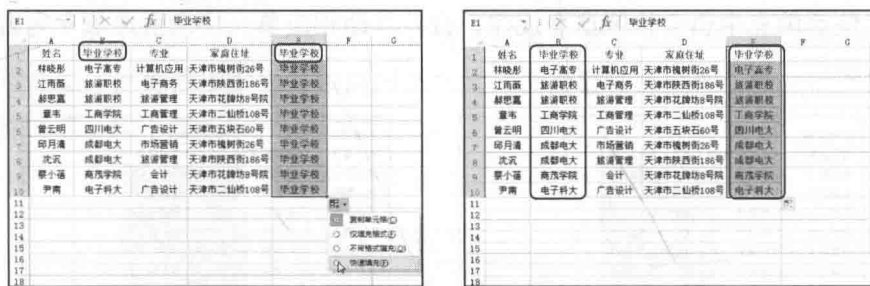 E1 fx 毕业学校
A B C D E F G
1 姓名 毕业学校 专业 家庭住址 毕业学校
2 林晓彤 电子高专 计算机应用 天津市槐树街26号 毕业学校
3 江雨薇 旅游职校 电子商务 天津市陕西街186号 毕业学校
4 郝思嘉 旅游职校 旅游管理 天津市花牌坊8号院 毕业学校
5 童韦 工商学院 工商管理 天津市二仙桥108号 毕业学校
6 曾云明 四川电大 广告设计 天津市五块石60号 毕业学校
7 邱月清 成都电大 市场营销 天津市槐树街26号 毕业学校
8 沈沉 成都电大 旅游管理 天津市陕西街186号 毕业学校
9 蔡小蓓 商茂学院 会计 天津市花牌坊8号院 毕业学校
10 尹南 电子科大 广告设计 天津市二仙桥108号 毕业学校
11
12 复制单元格(C)
13 仅填充格式(F)
14
15 不带格式填充(O)
16 快速填充(F)
17
18
E1 fx 毕业学校
A B C D E F G
1 姓名 毕业学校 专业 家庭住址 毕业学校
2 林晓彤 电子高专 计算机应用 天津市槐树街26号 电子高专
3 江雨薇 旅游职校 电子商务 天津市陕西街186号 旅游职校
4 郝思嘉 旅游职校 旅游管理 天津市花牌坊8号院 旅游职校
5 童韦 工商学院 工商管理 天津市二仙桥108号 工商学院
6 曾云明 四川电大 广告设计 天津市五块石60号 四川电大
7 邱月清 成都电大 市场营销 天津市槐树街26号 成都电大
8 沈沉 成都电大 旅游管理 天津市陕西街186号 成都电大
9 蔡小蓓 商茂学院 会计 天津市花牌坊8号院 商茂学院
10 尹南 电子科大 广告设计 天津市二仙桥108号 电子科大
11
12
13
14
15
16
17
18